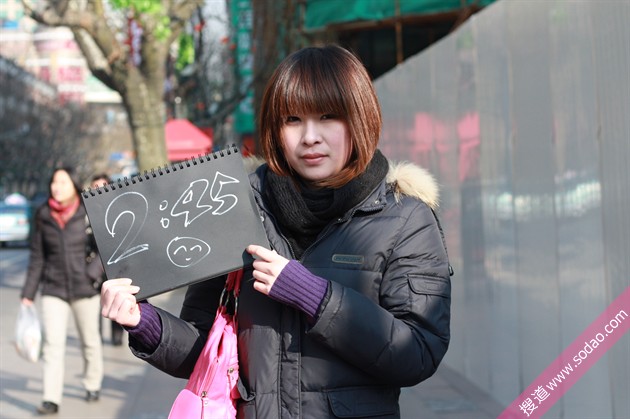 2:45
搜道www.sodao.com